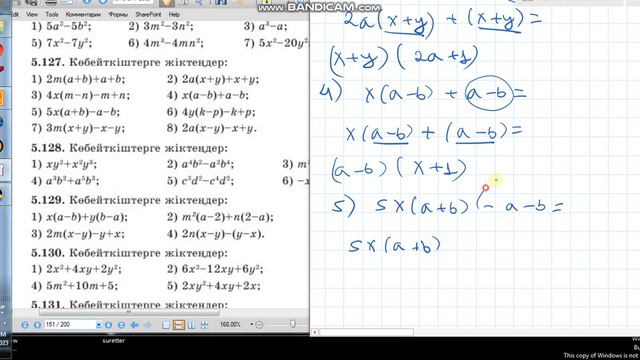 WWW.BANDICAM.COM
Комментарии Формы SharePoint Help
1) 5a²−5b²; 2) 3m²−3n²; 3) a³−a;
5) 7x²−7y²; 6) 4m³−4mn²; 7) 5x²−20y²
5.127. Көбейткіштерге жіктеңдер:
1) 2m(a+b)+a+b; 2) 2a(x+y)+x+y;
3) 4x(m−n)−m+n; 4) x(a−b)+a−b;
5) 5x(a+b)−a−b; 6) 4y(k−p)−k+p;
7) 3m(x+y)−x−y; 8) 2a(x−y)−x+y.
5.128. Көбейткіштерге жіктеңдер:
1) xy²+x²y³; 2) a⁴b²−a²b⁴; 3) m²
4) a³b²+a⁵b³; 5) c³d²−c⁴d²; 6) −x
5.129. Көбейткіштерге жіктеңдер:
1) x(a−b)+y(b−a); 2) m²(a−2)+n(2−a);
3) 2m(x−y)−y+x; 4) 2n(x−y)−(y−x).
5.130. Көбейткіштерге жіктеңдер:
1) 2x²+4xy+2y²; 2) 6x²−12xy+6y²;
4) 5m²+10m+5; 5) 2xy²+4xy+2x;
5.131. Көбейткіштерге жіктеңдер:
151 / 200 168.00%
suretter
2a(x+y) + (x+y) =
(x+y)(2a+1)
4) x(a−b) + a−b =
x(a−b) + (a−b) =
(a−b)(x+1)
5) 5x(a+b) (− a−b =
5x(a+b)
This copy of Windows is not